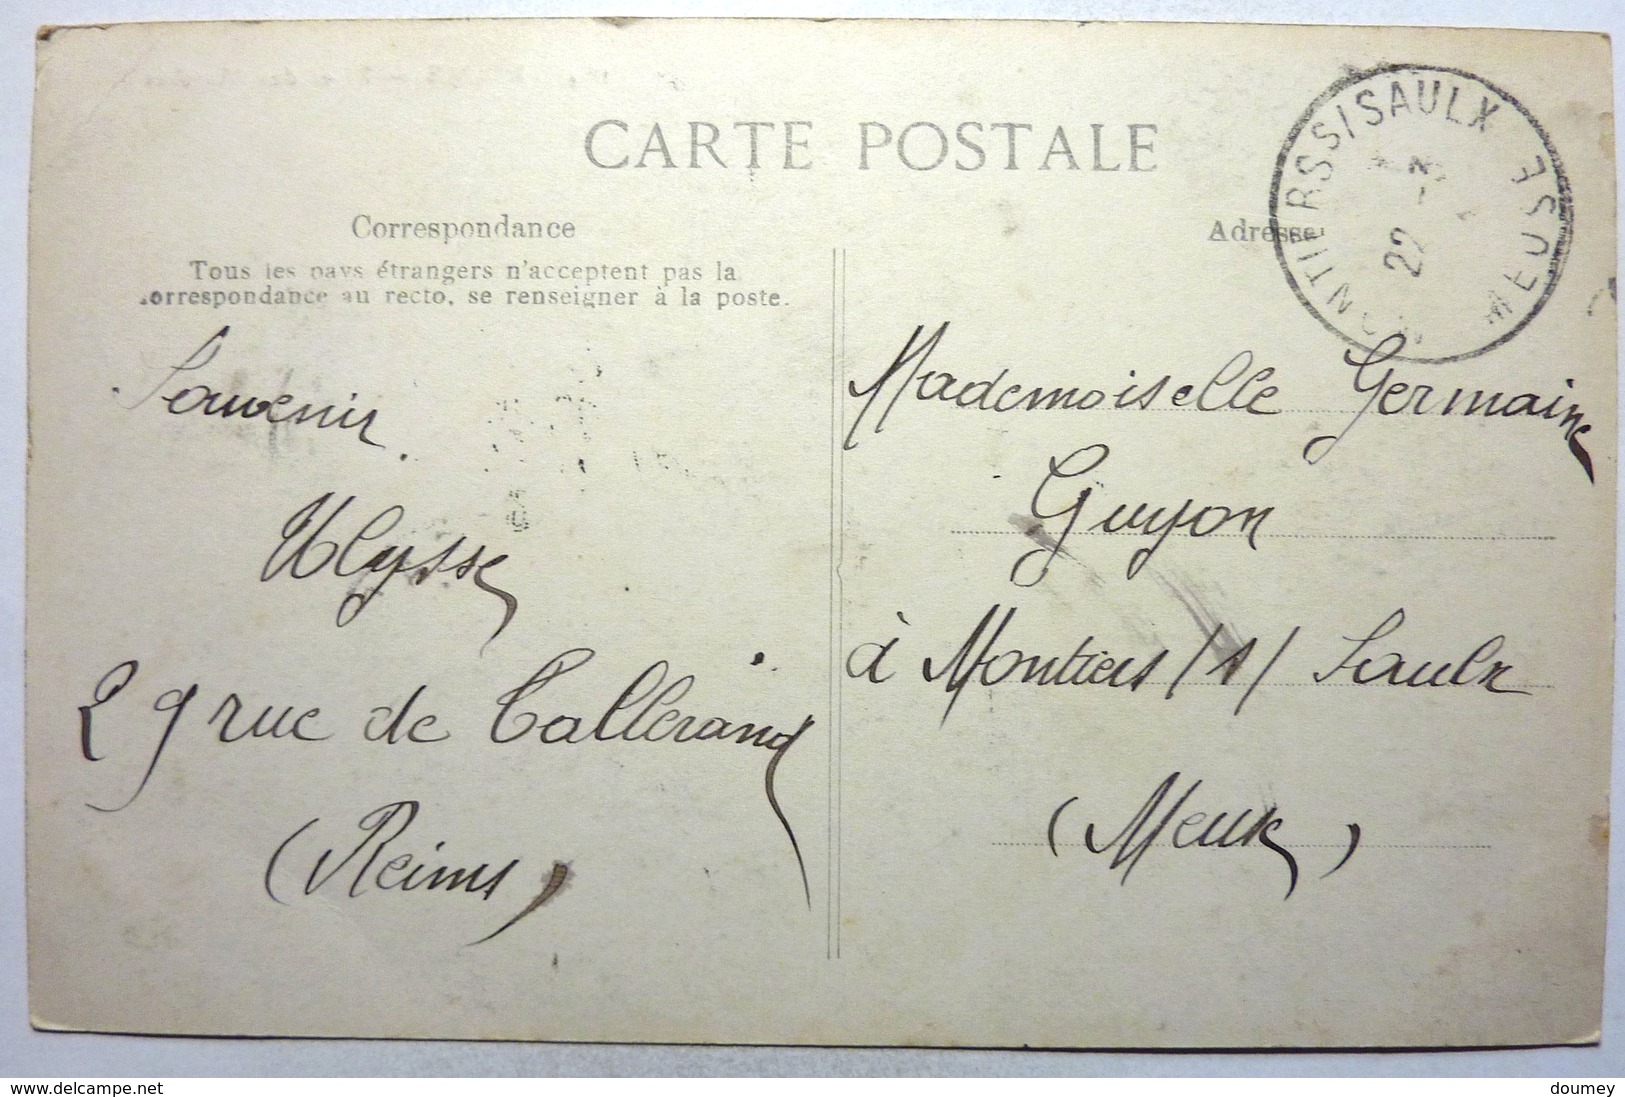 CARTE POSTALE
Correspondance
Tous les pays étrangers n'acceptent pas la
correspondance au recto, se renseigner à la poste.
Souvenir
Ulysse
29 rue de Tallerand
(Reims)
Adresse
MONTIERS S/SAULX
22 - 3
MEUSE
Mademoiselle Germaine
Guyon
à Montiers /s/ Saulx
(Meuse)
www.delcampe.net
doumey